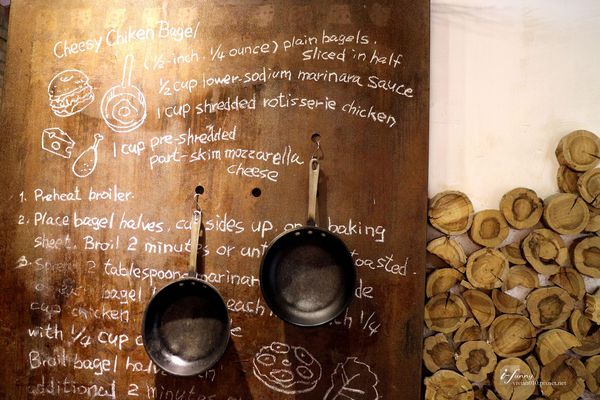 Cheesy Chiken Bagel
(½-inch, ¼ ounce) plain bagels,
Sliced in half
½ cup lower-sodium marinara sauce
1 cup shredded rotisserie chicken
1 cup pre-shredded
part-skim mozzarella
cheese
1. Preheat broiler.
2. Place bagel halves, sides up, baking
sheet. Broil 2 minutes or toasted.
3. 2 tablespoons marinara
bagel each ¼
cup chicken
with ¼ cup
Broil bagel
additional 2 minutes
i-funny